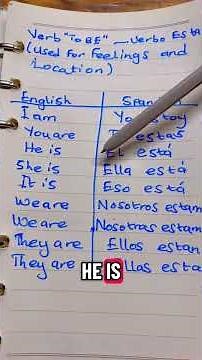 Verb "TO BE" — Verbo Esta
(Used For Feelings and
Location)
English
I am stoy
You are estas
He is El está
She is Ella está
It is Eso está
We are Nosotros estam
We are Nosotras estam
They are Ellos estan
They are esta
HE IS